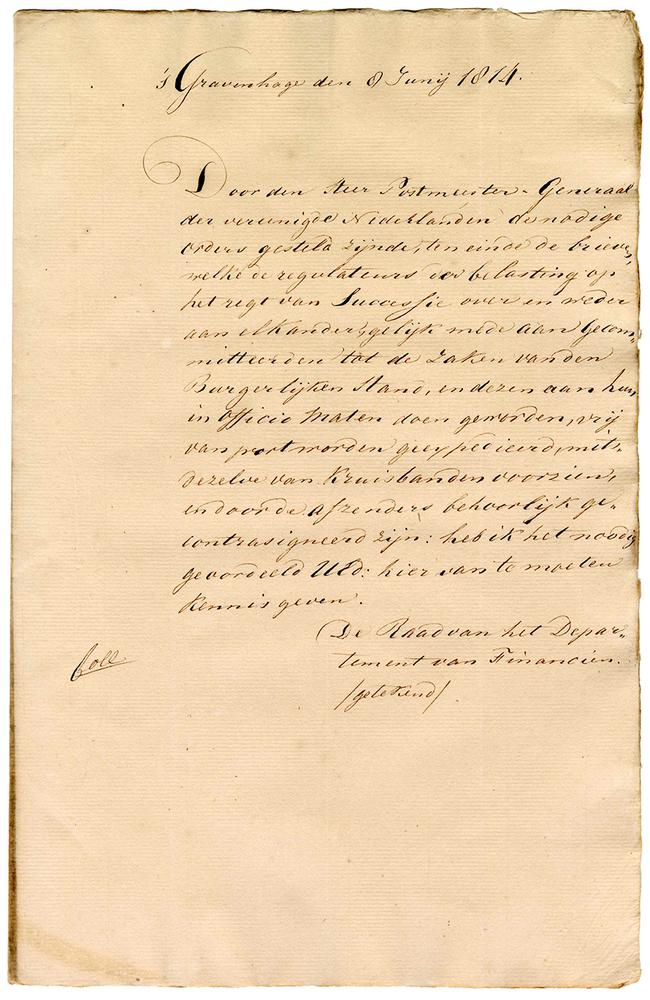 's Gravenhage den 8 Junij 1814.
Door den Heer Postmeester-Generaal
der vereenigde Nederlanden de nodige
orders gesteld zijnde, ten einde de brieven,
welke de regulateurs der belasting op
het regt van Successie over en weder
aan elkander, gelijk mede aan Gecom-
mitteerden tot de Zaken van den
Burgerlijken Stand, en dezen aan hun
in officio maten doen geworden, vrij
van port worden geexpedieerd, mits
dezelve van Kruisbanden voorzien,
en door de afzenders behoorlijk ge-
contrasigneerd zijn: heb ik het noodig
geoordeeld UEd: hier van te moeten
Kennis geven.
De Raad van het Depar-
tement van Financien.
/getekend/
Coll